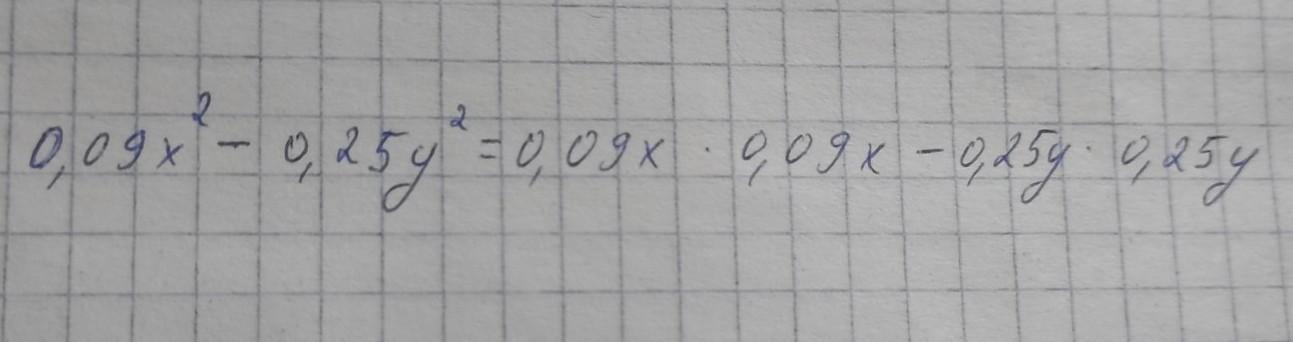 0,09x² - 0,25y² = 0,09x · 0,09x - 0,25y · 0,25y